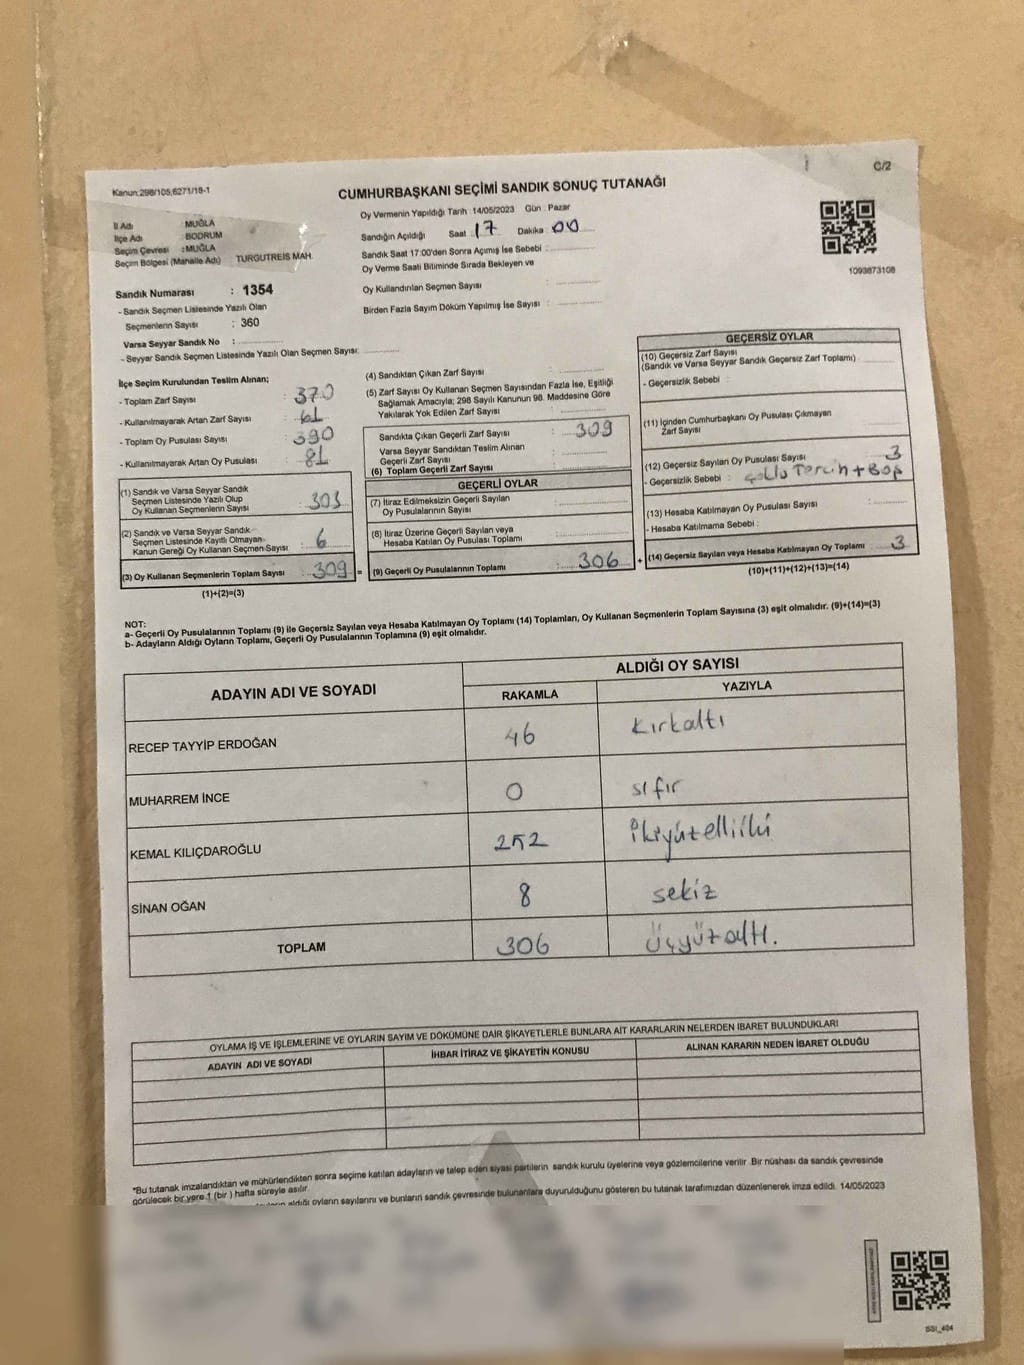 C/2
Kanun:298/105,6271/18-1
CUMHURBAŞKANI SEÇİMİ SANDIK SONUÇ TUTANAĞI
İl Adı MUĞLA
İlçe Adı BODRUM
Seçim Çevresi : MUĞLA
Seçim Bölgesi (Mahalle Adı) TURGUTREİS MAH.
Oy Vermenin Yapıldığı Tarih 14/05/2023 Gün : Pazar
Sandığın Açıldığı Saat 17 Dakika 00
Sandık Saat 17:00'den Sonra Açımış İse Sebebi :
Oy Verme Saati Bitiminde Sırada Bekleyen ve
Oy Kullandırılan Seçmen Sayısı :
Birden Fazla Sayım Döküm Yapılmış İse Sayısı :
1093873108
Sandık Numarası : 1354
- Sandık Seçmen Listesinde Yazılı Olan
Seçmenlerin Sayısı : 360
Varsa Seyyar Sandık No :
- Seyyar Sandık Seçmen Listesinde Yazılı Olan Seçmen Sayısı:
İlçe Seçim Kurulundan Teslim Alınan;
- Toplam Zarf Sayısı : 370
- Kullanılmayarak Artan Zarf Sayısı : 61
- Toplam Oy Pusulası Sayısı : 390
- Kullanılmayarak Artan Oy Pusulası : 81
(1) Sandık ve Varsa Seyyar Sandık
Seçmen Listesinde Yazılı Olup
Oy Kullanan Seçmenlerin Sayısı : 303
(2) Sandık ve Varsa Seyyar Sandık
Seçmen Listesinde Kayıtlı Olmayan
Kanun Gereği Oy Kullanan Seçmen Sayısı : 6
(3) Oy Kullanan Seçmenlerin Toplam Sayısı : 309 =
(1)+(2)=(3)
(4) Sandıktan Çıkan Zarf Sayısı :
(5) Zarf Sayısı Oy Kullanan Seçmen Sayısından Fazla İse, Eşitliği
Sağlamak Amacıyla; 298 Sayılı Kanunun 98. Maddesine Göre
Yakılarak Yok Edilen Zarf Sayısı :
Sandıkta Çıkan Geçerli Zarf Sayısı : 309
Varsa Seyyar Sandıktan Teslim Alınan
Geçerli Zarf Sayısı :
(6) Toplam Geçerli Zarf Sayısı :
GEÇERLİ OYLAR
(7) İtiraz Edilmeksizin Geçerli Sayılan
Oy Pusulalarının Sayısı :
(8) İtiraz Üzerine Geçerli Sayılan veya
Hesaba Katılan Oy Pusulası Toplamı :
(9) Geçerli Oy Pusulalarının Toplamı : 306 +
GEÇERSİZ OYLAR
(10) Geçersiz Zarf Sayısı
(Sandık ve Varsa Seyyar Sandık Geçersiz Zarf Toplamı)
- Geçersizlik Sebebi :
(11) İçinden Cumhurbaşkanı Oy Pusulası Çıkmayan
Zarf Sayısı
(12) Geçersiz Sayılan Oy Pusulası Sayısı : 3
- Geçersizlik Sebebi :
(13) Hesaba Katılmayan Oy Pusulası Sayısı :
- Hesaba Katılmama Sebebi :
(14) Geçersiz Sayılan veya Hesaba Katılmayan Oy Toplamı : 3
(10)+(11)+(12)+(13)=(14)
NOT:
a- Geçerli Oy Pusulalarının Toplamı (9) ile Geçersiz Sayılan veya Hesaba Katılmayan Oy Toplamı (14) Toplamları, Oy Kullanan Seçmenlerin Toplam Sayısına (3) eşit olmalıdır. (9)+(14)=(3)
b- Adayların Aldığı Oyların Toplamı, Geçerli Oy Pusulalarının Toplamına (9) eşit olmalıdır.
ADAYIN ADI VE SOYADI
ALDIĞI OY SAYISI
RAKAMLA YAZIYLA
RECEP TAYYİP ERDOĞAN 46 Kırkaltı
MUHARREM İNCE 0 sıfır
KEMAL KILIÇDAROĞLU 252 ikiyüzelliiki
SİNAN OĞAN 8 sekiz
TOPLAM 306 Üçyüzaltı.
OYLAMA İŞ VE İŞLEMLERİNE VE OYLARIN SAYIM VE DÖKÜMÜNE DAİR ŞİKAYETLERLE BUNLARA AİT KARARLARIN NELERDEN İBARET BULUNDUKLARI
ADAYIN ADI VE SOYADI İHBAR İTİRAZ VE ŞİKAYETİN KONUSU ALINAN KARARIN NEDEN İBARET OLDUĞU
*Bu tutanak imzalandıktan ve mühürlendikten sonra seçime katılan adayların ve talep eden siyasi partilerin sandık kurulu üyelerine veya gözlemcilerine verilir .Bir nüshası da sandık çevresinde
görülecek bir yere 1 (bir ) hafta süreyle asılır.
aldığı oyların sayılarını ve bunların sandık çevresinde bulunanlara duyurulduğunu gösteren bu tutanak tarafımızdan düzenlenerek imza edildi. 14/05/2023